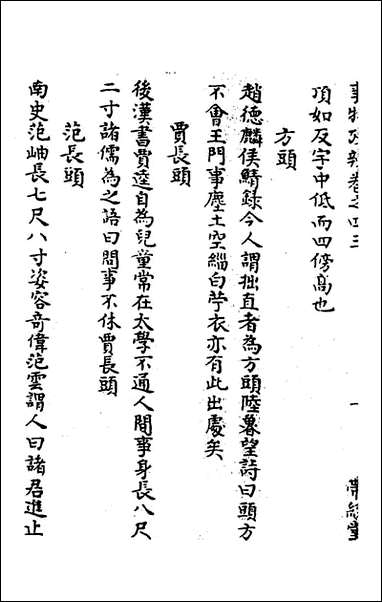 事物考辨卷之四三
一
帶經堂
項如反字中低而四傍高也
方頭
趙德麟侯鯖錄今人謂拙直者為方頭陸魯望詩曰頭方
不會王門事塵土空緇白苧衣亦有此出處矣
賈長頭
後漢書賈逵自為兒童常在太學不通人間事身長八尺
二寸諸儒為之語曰問事不休賈長頭
范長頭
南史范岫長七尺八寸姿容奇偉范雲謂人曰諸君進止